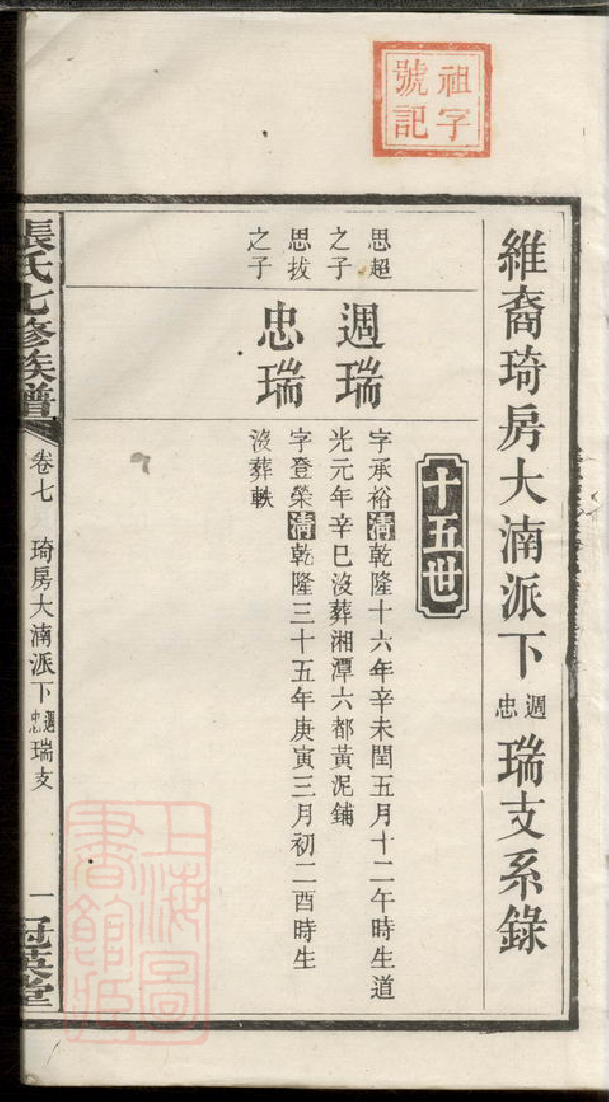 祖字
號記
維裔琦房大湳派下週忠瑞支系錄
十五世
思超
之子
週瑞
字承裕清乾隆十六年辛未閏五月十二午時生道
光元年辛巳沒葬湘潭六都黃泥鋪
思拔
之子
忠瑞
字登榮清乾隆三十五年庚寅三月初二酉時生
沒葬軼
張氏七修族譜
卷七
琦房大湳派下週忠瑞支
一
冠英堂
上海圖
書館藏